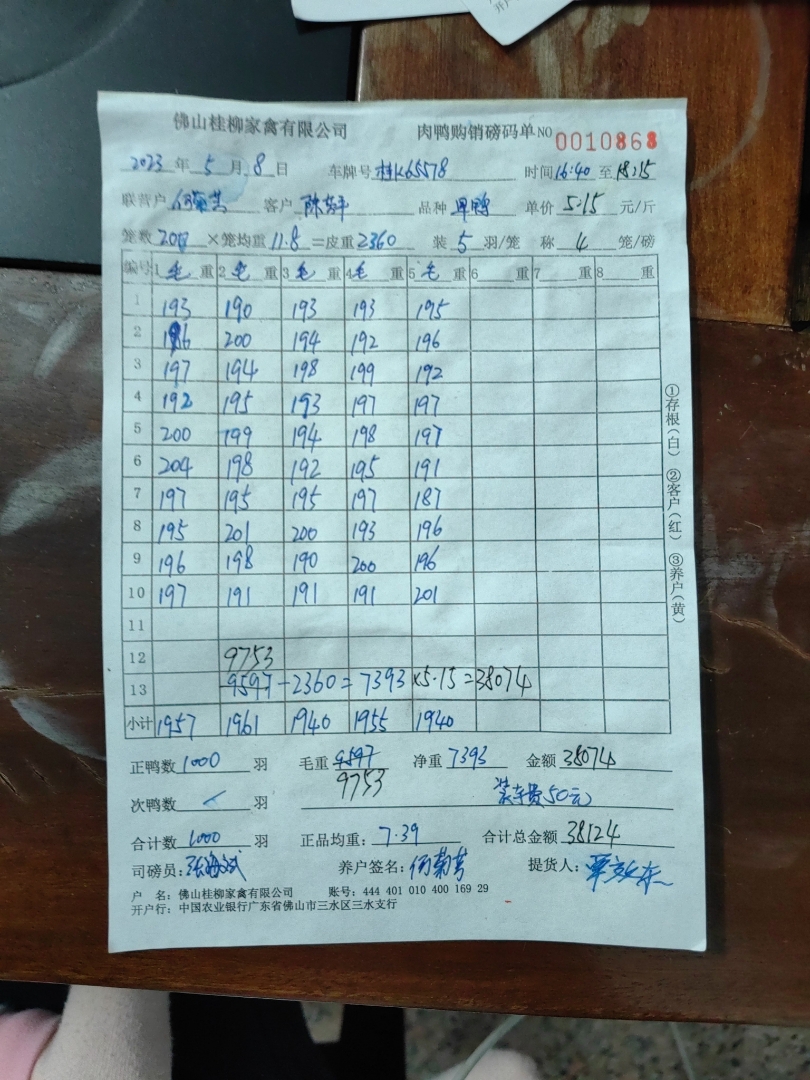 佛山桂柳家禽有限公司 肉鸭购销磅码单 NO 0010868
2023年5月8日 车牌号 桂K65578 时间16:40至18:15
联营户 何菊芳 客户 品种 单价 5.15 元/斤
笼数 200 ×笼均重 11.8 =皮重 2360 装 5 羽/笼 称 4 笼/磅
编号 1毛重 2毛重 3毛重 4毛重 5毛重 6 重 7 重 8 重
1 193 190 193 193 195
2 186 200 194 192 196
3 197 194 198 199 192
4 192 195 193 197 197
5 200 199 194 198 197
6 204 198 192 195 191
7 197 195 195 197 187
8 195 201 200 193 196
9 196 198 190 200 196
10 197 191 191 191 201
11
12 9753
13 9597-2360=7393×5.15=38074
小计 1957 1961 1940 1955 1940
正鸭数 1000 羽 毛重 9597 净重 7393 金额 38074
9753
次鸭数 羽 装车费50元
合计数 1000 羽 正品均重: 7.39 合计总金额 38124
司磅员: 养户签名: 何菊芳 提货人:
户 名: 佛山桂柳家禽有限公司 账号: 444 401 010 400 169 29
开户行: 中国农业银行广东省佛山市三水区三水支行
①存根(白) ②客户(红) ③养户(黄)